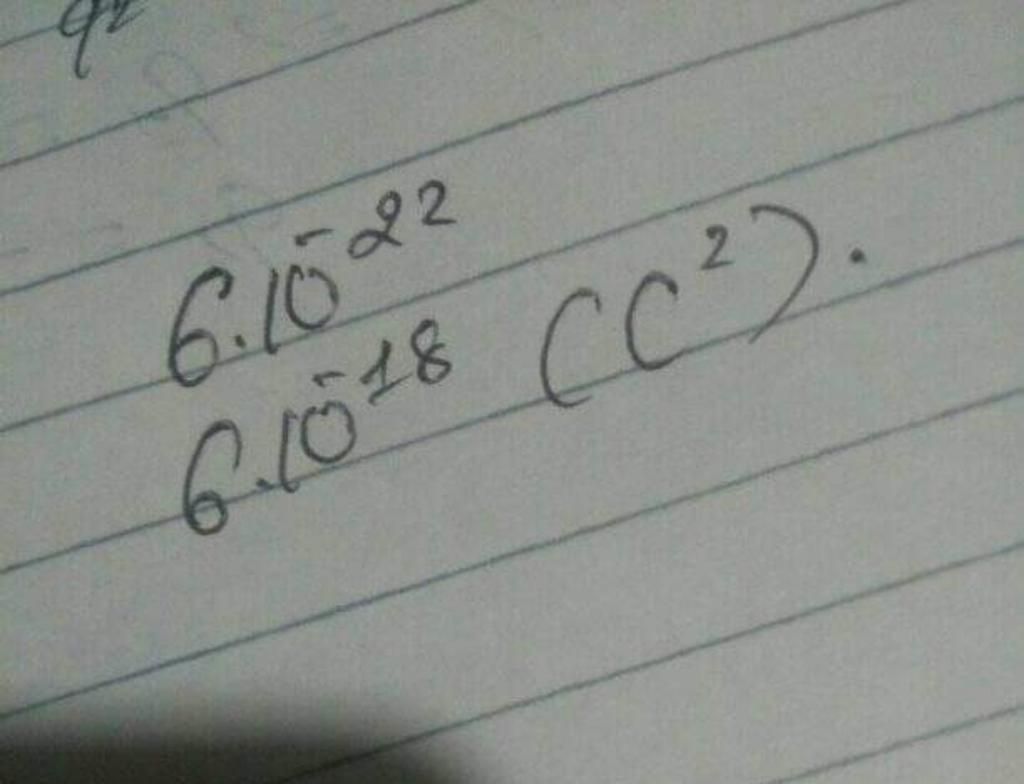 q²
6.10⁻²²
6.10⁻¹⁸ (C²).